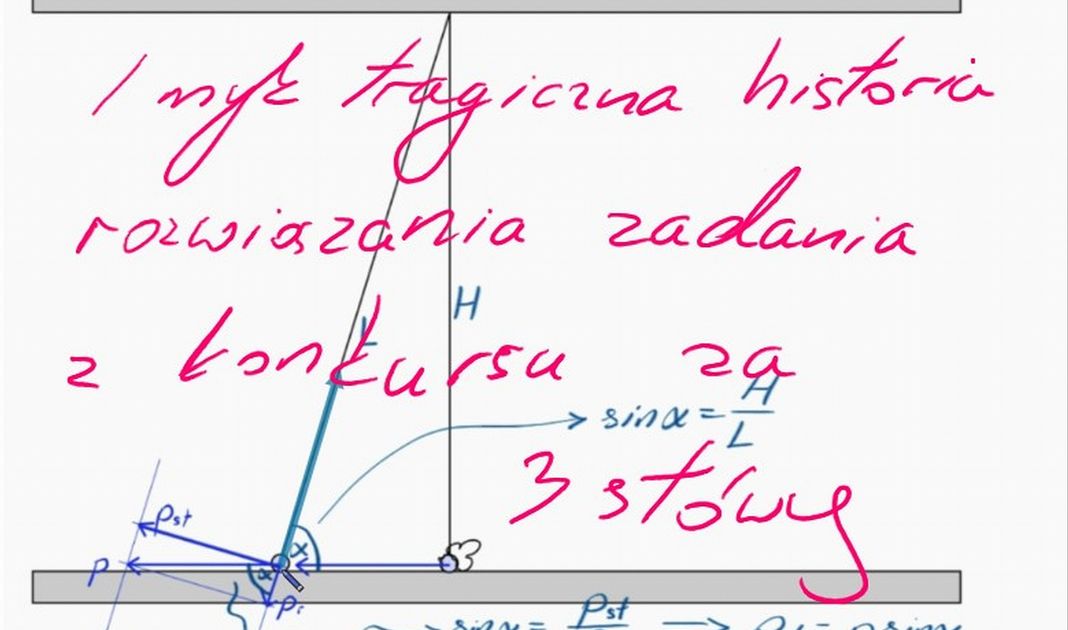 I myk tragiczna historia
rozwiązania zadania
z konkursu za
3 stówy
H
L
sinα = H/L
Pst
α
P
α
Pr
sinα = Pst